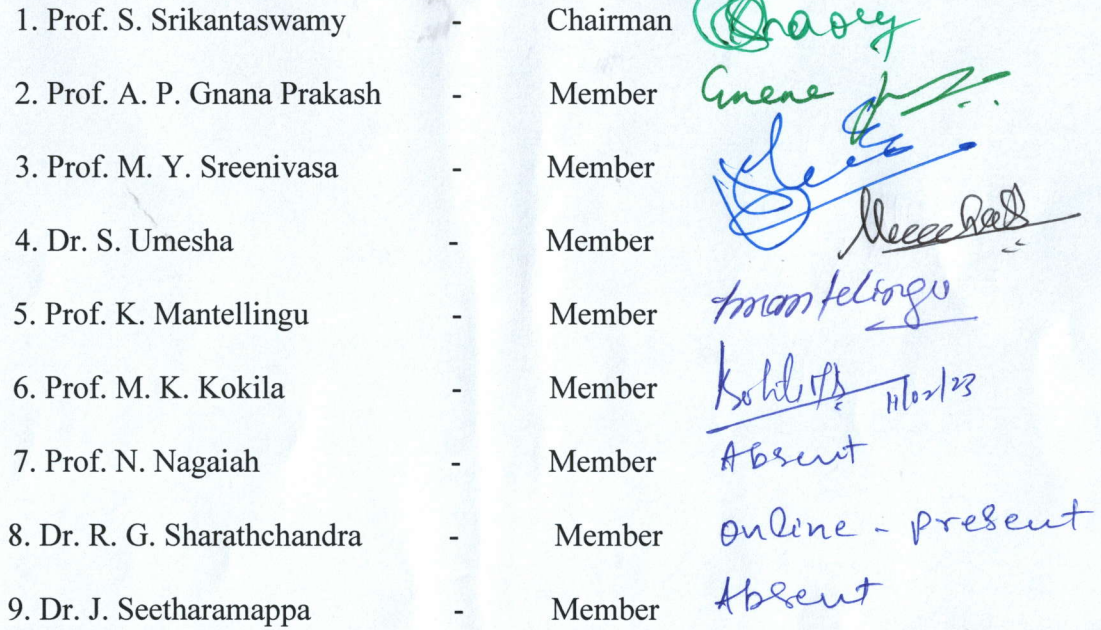 1. Prof. S. Srikantaswamy - Chairman
2. Prof. A. P. Gnana Prakash - Member
3. Prof. M. Y. Sreenivasa - Member
4. Dr. S. Umesha - Member
5. Prof. K. Mantellingu - Member mantelingu
6. Prof. M. K. Kokila - Member 11/02/23
7. Prof. N. Nagaiah - Member Absent
8. Dr. R. G. Sharathchandra - Member online - present
9. Dr. J. Seetharamappa - Member Absent